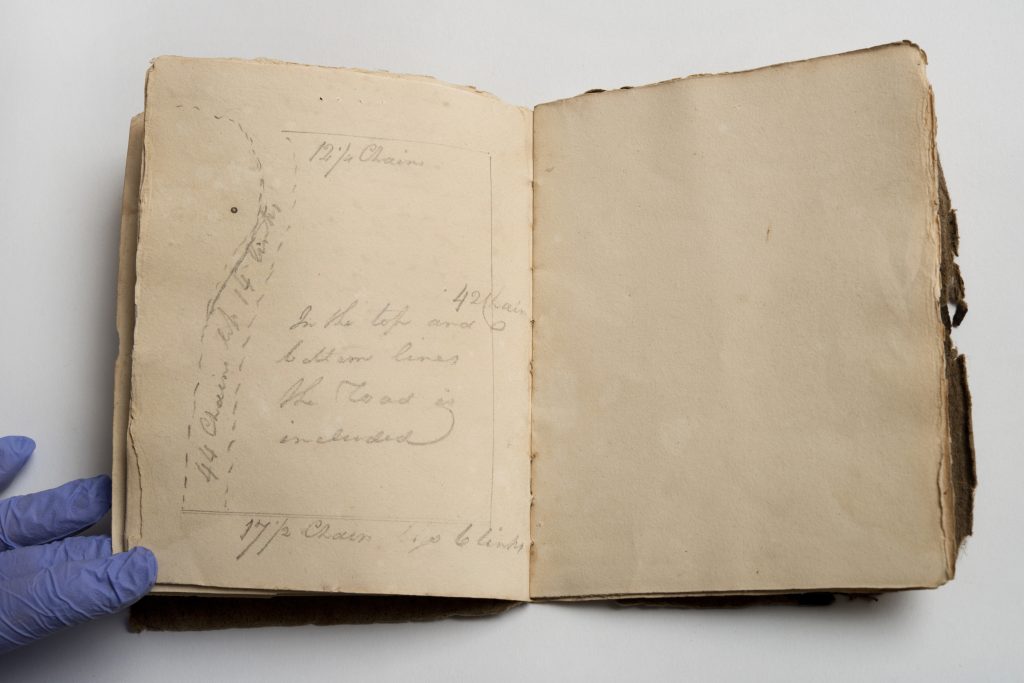 12 1/2 Chains
44 Chains less 14 links
42 Chain
In the top and
bottom lines
the Road is
included
17 1/2 Chain less 6 links